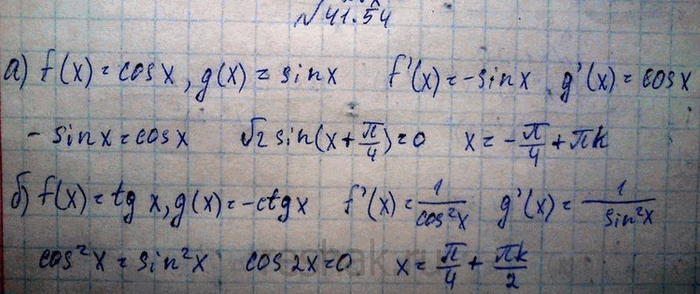 №41.54
а) f(x) = cosx, g(x) = sinx f'(x) = -sinx g'(x) = cosx
-sinx = cosx √2 sin(x + π/4) = 0 x = -π/4 + πk
б) f(x) = tg x, g(x) = -ctgx f'(x) = 1/cos²x g'(x) = 1/sin²x
cos²x = sin²x cos2x = 0 x = π/4 + πk/2